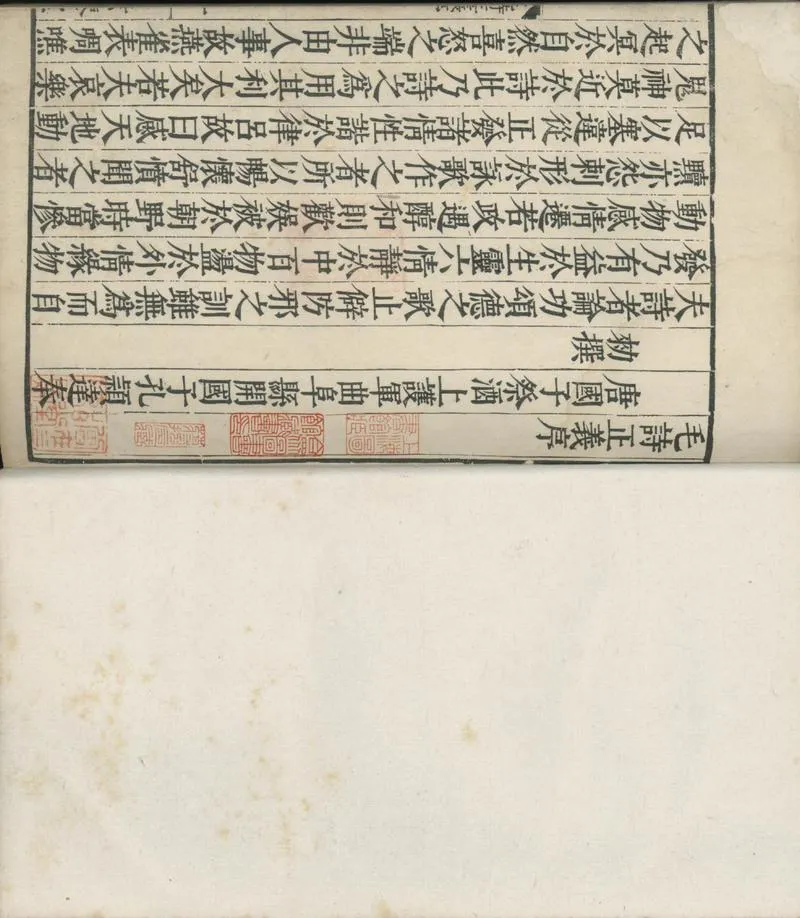 毛詩正義序
唐國子祭酒上護軍曲阜縣開國子孔穎達奉
勑撰
夫詩者論功頌德之歌止僻防邪之訓雖無爲而自
發乃有益於生靈六情靜於中百物盪於外情緣物
動物感情遷若政遇醇和則歡娛被於朝野時當慘
黷亦怨刺形於詠歌作之者所以暢懷舒憤聞之者
足以塞違從正發諸情性諧於律呂故曰感天地動
鬼神莫近於詩此乃詩之爲用其利大矣若夫哀樂
之起冥於自然喜怒之端非由人事故燕雀表啁噍